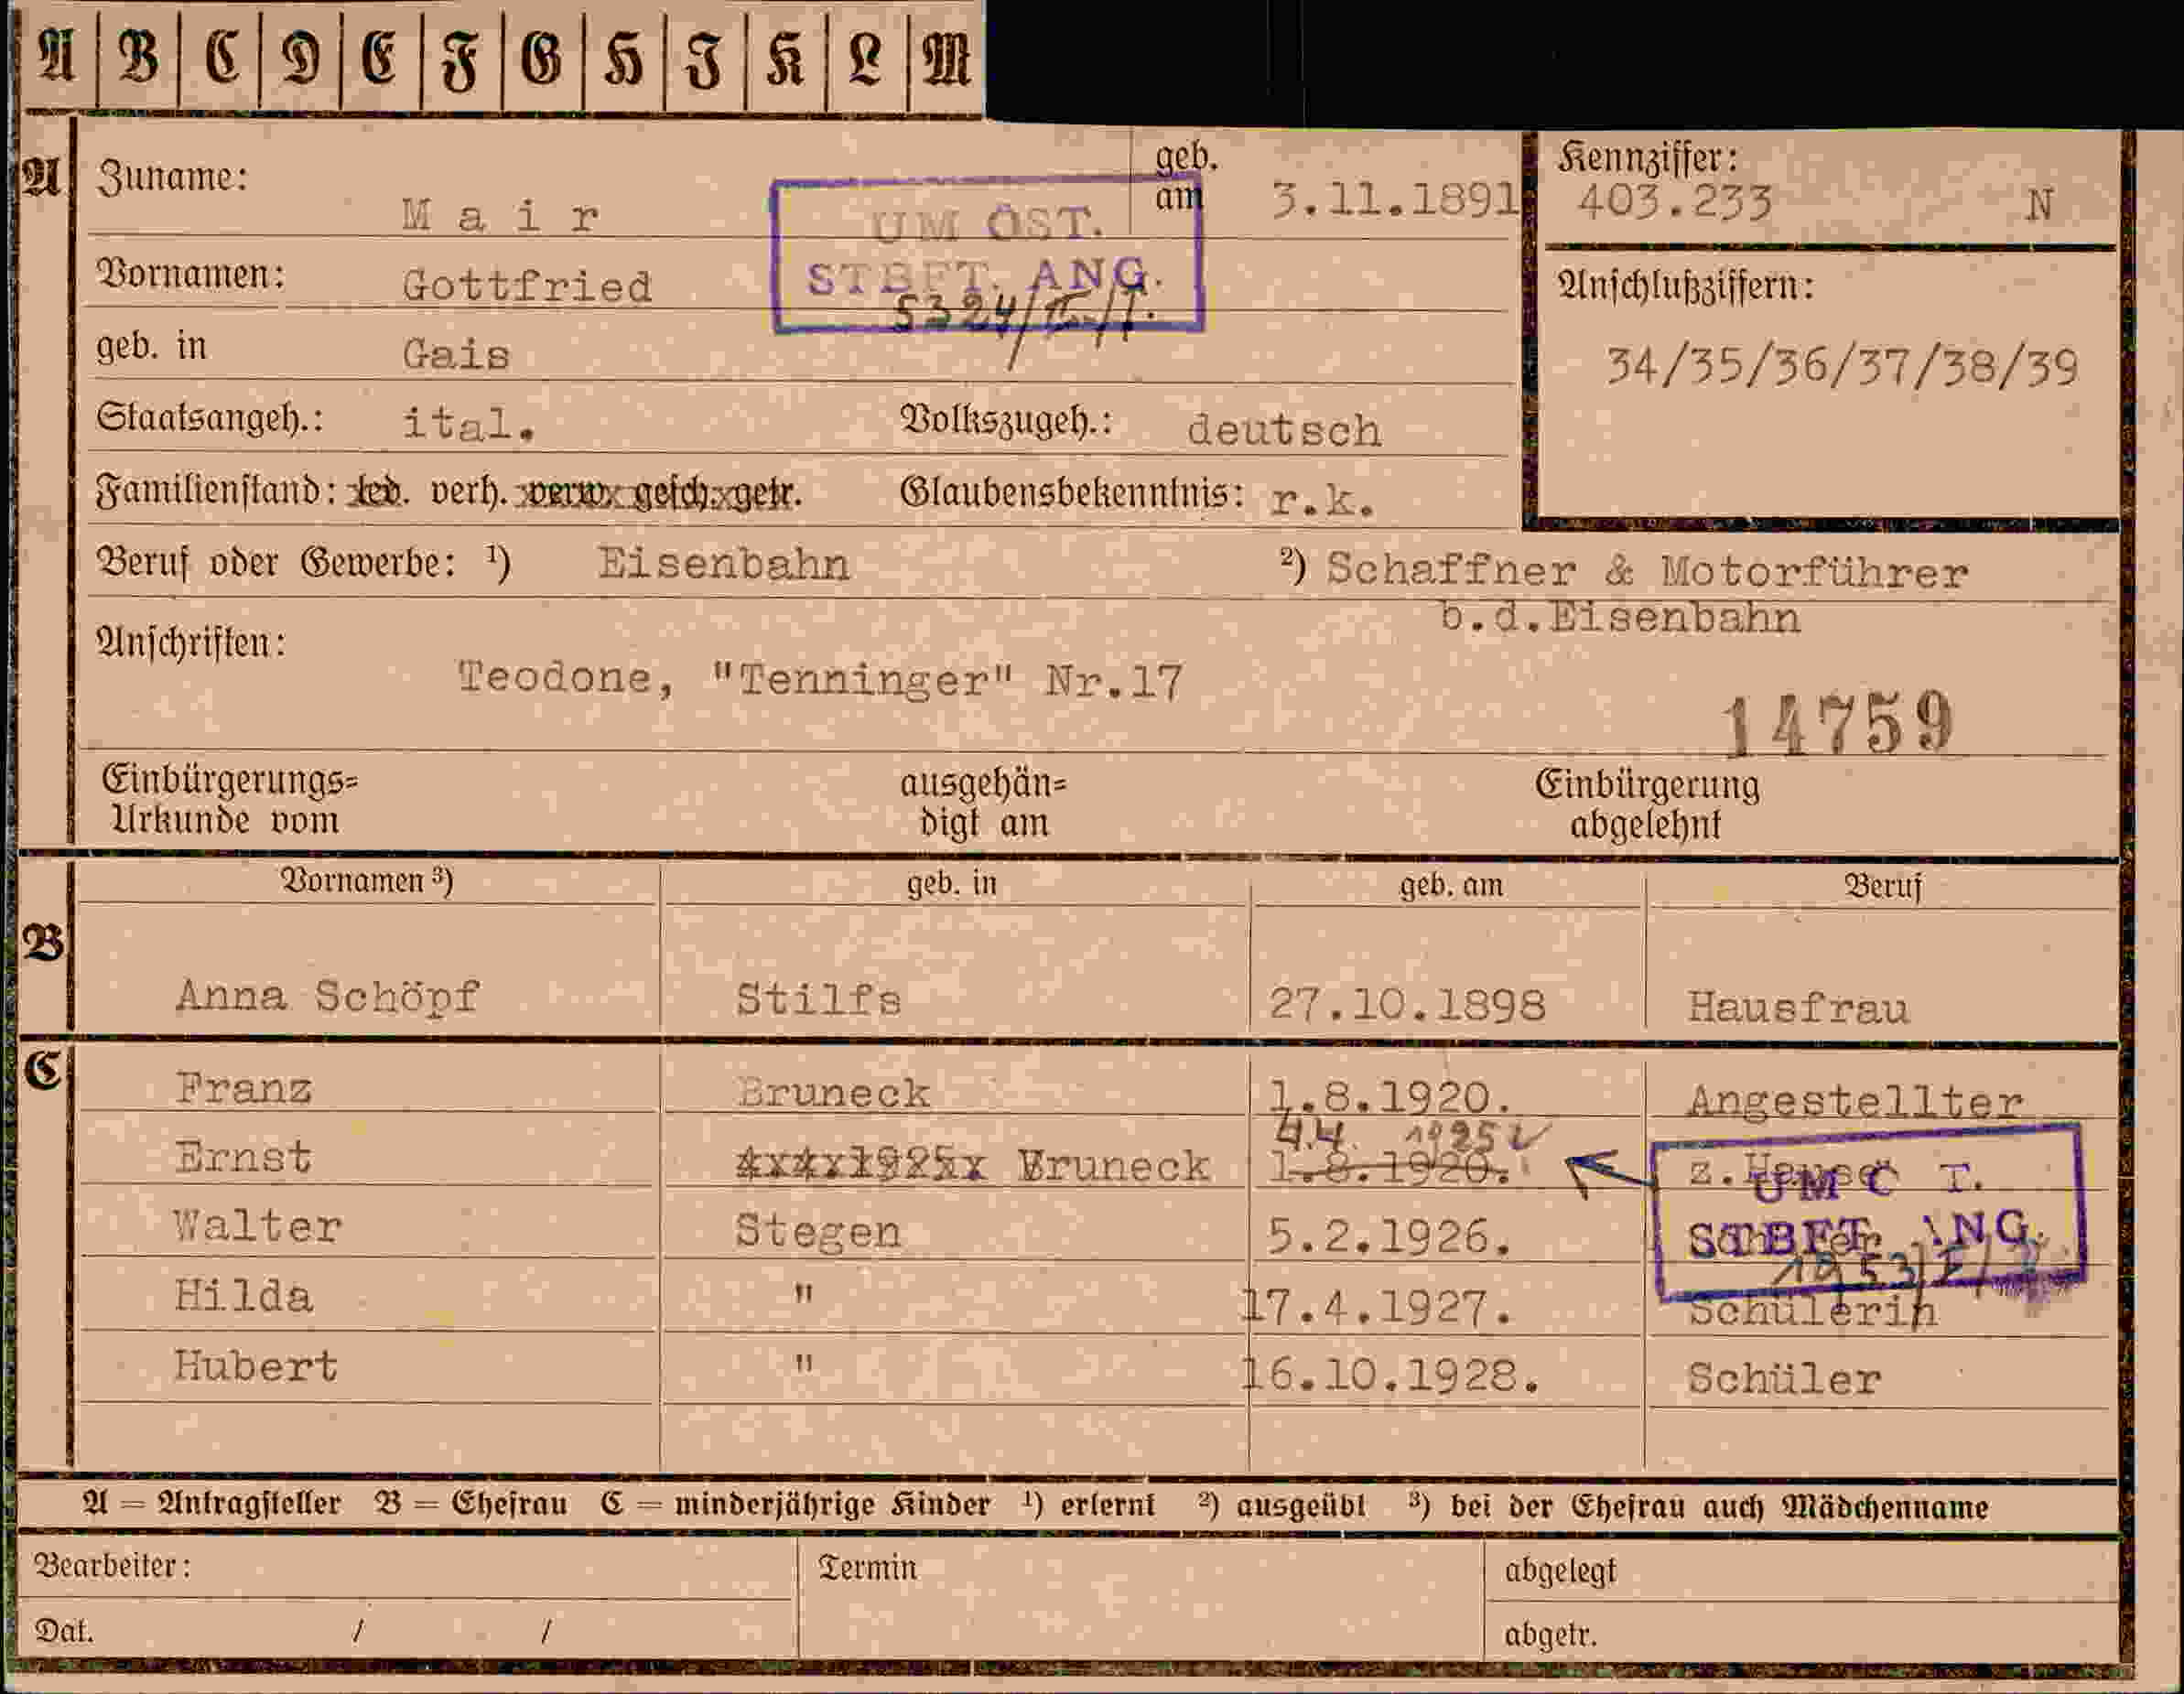 A B C D E F G H I K L M
A Zuname: M a i r geb. am 3.11.1891
Kennziffer: 403.233 N
UM ÖST.
STBFT. ANG.
5324/
Vornamen: Gottfried
Anschlußziffern:
34/35/36/37/38/39
geb. in Gais
Staatsangeh.: ital. Volkszugeh.: deutsch
Familienstand: led. verh. verw. gesch. getr. Glaubensbekenntnis: r.k.
Beruf oder Gewerbe: ¹) Eisenbahn ²) Schaffner & Motorführer
b.d.Eisenbahn
Anschriften: Teodone, "Tenninger" Nr.17
14759
Einbürgerungs=
Urkunde vom
ausgehän=
digt am
Einbürgerung
abgelehnt
B Vornamen ³) geb. in geb. am Beruf
Anna Schöpf Stilfs 27.10.1898 Hausfrau
C Franz Bruneck 1.8.1920. Angestellter
4.4. 1925
Ernst 4x4x1925x Bruneck 1.8.1920. z.Hause
UM T.
Walter Stegen 5.2.1926.
STBFT. ANG.
Hilda " 17.4.1927. Schülerin
Hubert " 16.10.1928. Schüler
A = Antragsteller B = Ehefrau C = minderjährige Kinder ¹) erlernt ²) ausgeübt ³) bei der Ehefrau auch Mädchenname
Bearbeiter: Termin abgelegt
Dat. / / abgetr.